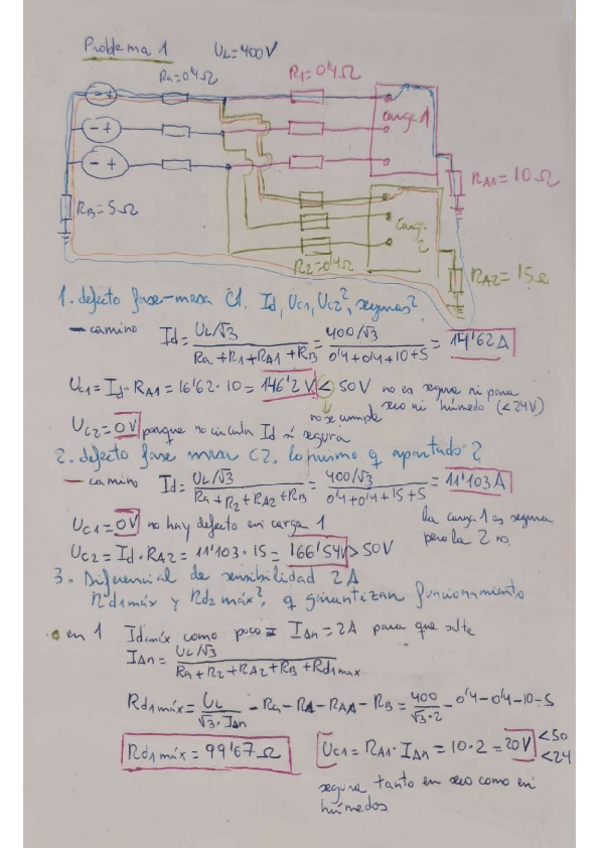 Problema 1 UL=400V
Ra=0'4Ω R1=0'4Ω
- +
carga 1
- +
- +
RA1=10Ω
RB=5Ω
carga 2
R2=0'4Ω
RA2=15Ω
1. defecto fase-masa C1. Id, Uc1, Uc2?, seguras?
— camino Id= UL/√3 / Ra+R1+RA1+RB = 400/√3 / 0'4+0'4+10+5 = 14'62A
Uc1=Id·RA1=16'62·10=146'2V < 50V no es segura ni para
no se cumple seco ni húmedo (<24V)
Uc2=0V porque no circula Id sí segura
2. defecto fase masa C2. lo mismo q apartado 2
— camino Id= UL/√3 / Ra+R2+RA2+RB = 400/√3 / 0'4+0'4+15+5 = 11'103A
Uc1=0V no hay defecto en carga 1 la carga 1 es segura
pero la 2 no.
Uc2=Id·RA2=11'103·15=166'54V>50V
3. Diferencial de sensibilidad 2A
Rd1máx y Rd2máx?, q garantizan funcionamiento
• en 1 Id1máx como poco = IΔn=2A para que salte
IΔn= UL/√3 / Ra+R2+RA2+RB+Rd1max
Rd1máx= UL / √3·IΔn -Ra-RA-RA1-RB= 400 / √3·2 -0'4-0'4-10-5
Rd1máx=99'67Ω Uc1=RA1·IΔn=10·2=20V <50 <24
segura tanto en seco como en
húmedos